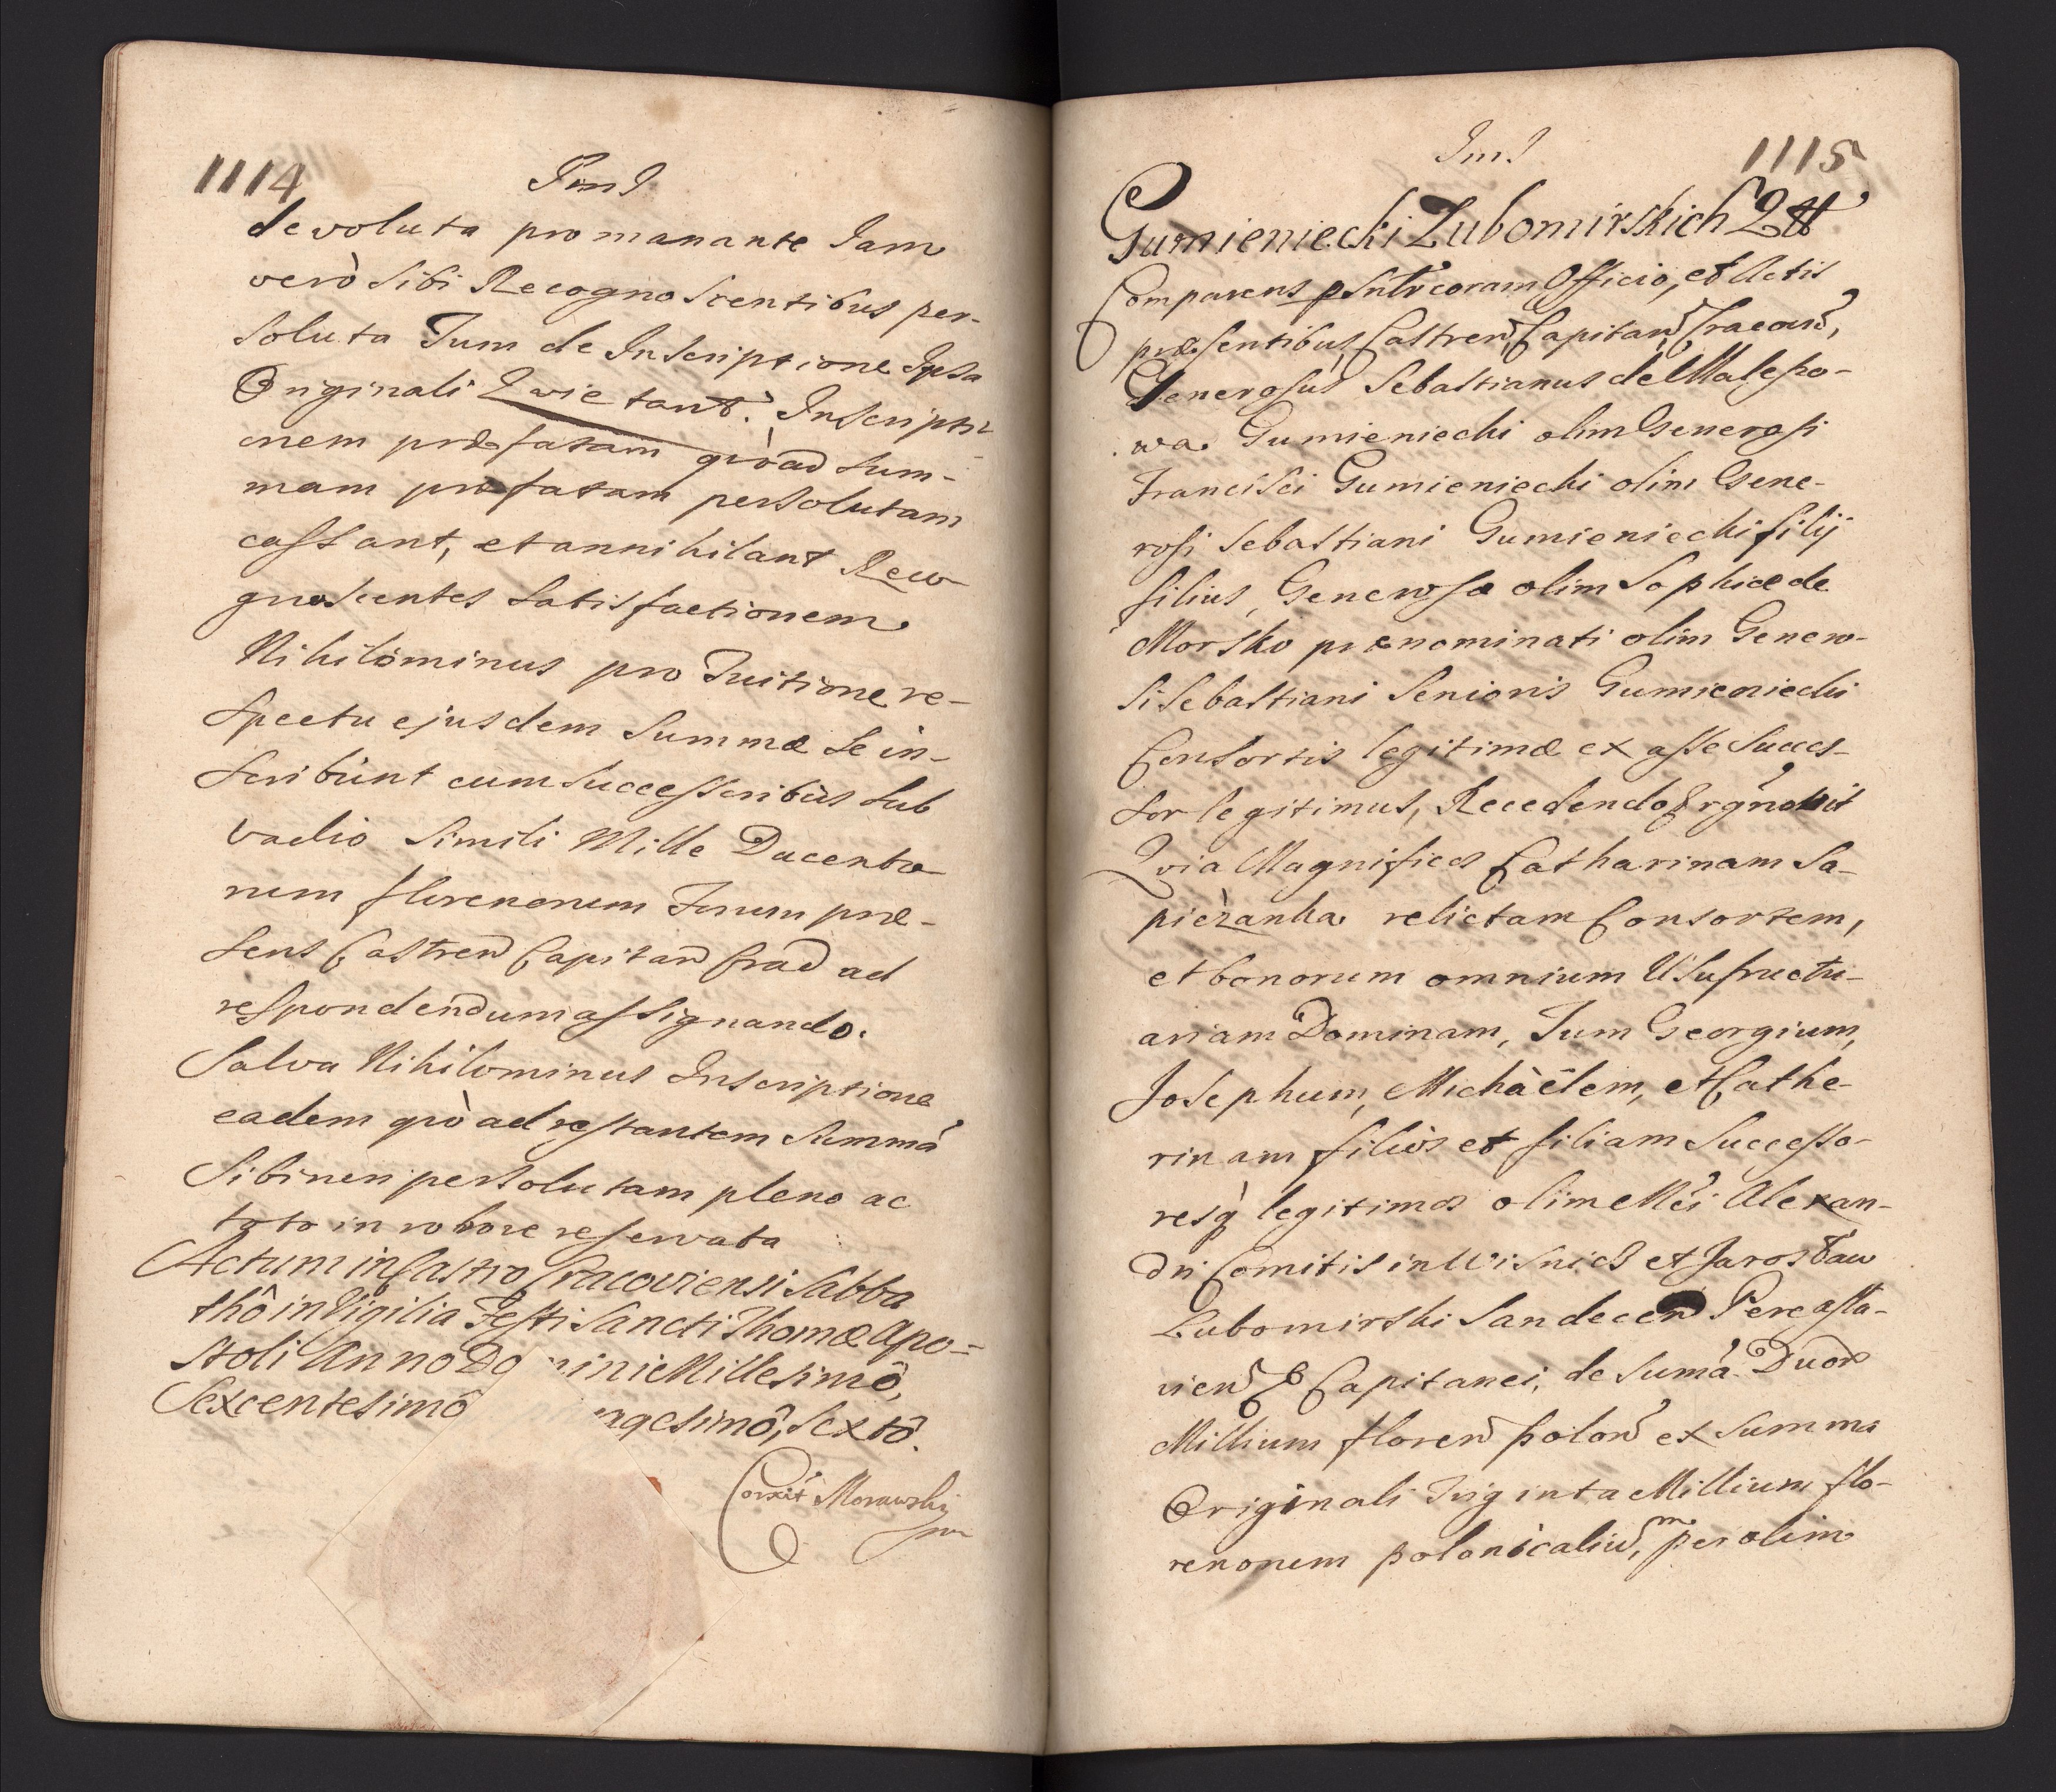 1114
devoluta promanante Jam
verò Sibi Recognoscentibus per-
soluta Tum de Inscriptione Ipsa
Originali Qvietant. Inscripti
onem præfatam qvoad Sum-
mam præfatam persolutam
cassant, et annihilant Reco
gnoscentes Satisfactionem
Nihilominus pro Tuitione re-
spectu ejusdem Summæ Se in-
scribunt cum Successoribus Sub
vadio Simili Mille Ducento
rum florenorum Forum præ-
sens Castren Capitan Crac ad
respondendum assignando.
Salva Nihilominus Inscriptione
eadem qvò ad restantem Summã
Sibi non persolutam pleno ac
toto in robore reservata
Actum in Castro Cracoviensi Sabba
thô in Vigilia Festi Sancti Thomæ Apo-
stoli Anno Do ini Millesimô,
Sexcentesimô agesimô, Sextô.
Corxit Morawski
mp
1115
Gumieniecki Lubomirskich Qtt
Comparens psntr coram Officio, et Actis
præsentibus Castren Capitan Cracoviẽ,
Generosus Sebastianus de Maleszo-
wa Gumieniecki olim Generosi
Francisci Gumieniecki olim Gene-
rosi Sebastiani Gumieniecki filij
filius, Generosæ olim Sophiæ de
Morsko prænominati olim Genero-
si Sebastiani Senioris Gumieniecki
Consortis legitimæ ex asse Succes-
sor legitimus, Recedendo & rgnovit
Qvia Magnificos Catharinam Sa-
pieżanka relictam Consortem,
et bonorum omnium Usufructu-
ariam Dominam, Tum Georgium,
Josephum, Michàëlem, et Cathe-
rinam filios et filiam Successo-
resq̀ legitimos olim Mci Alexan-
dri Comitis in Wisnicz et Jarosław
Lubomirski Sandecen Pereasla-
vien & Capitanei, de Sumã Duor
Millium floren polon ex Summa
Originali Triginta Millium flo-
renorum polonicaliu͂m, per olim